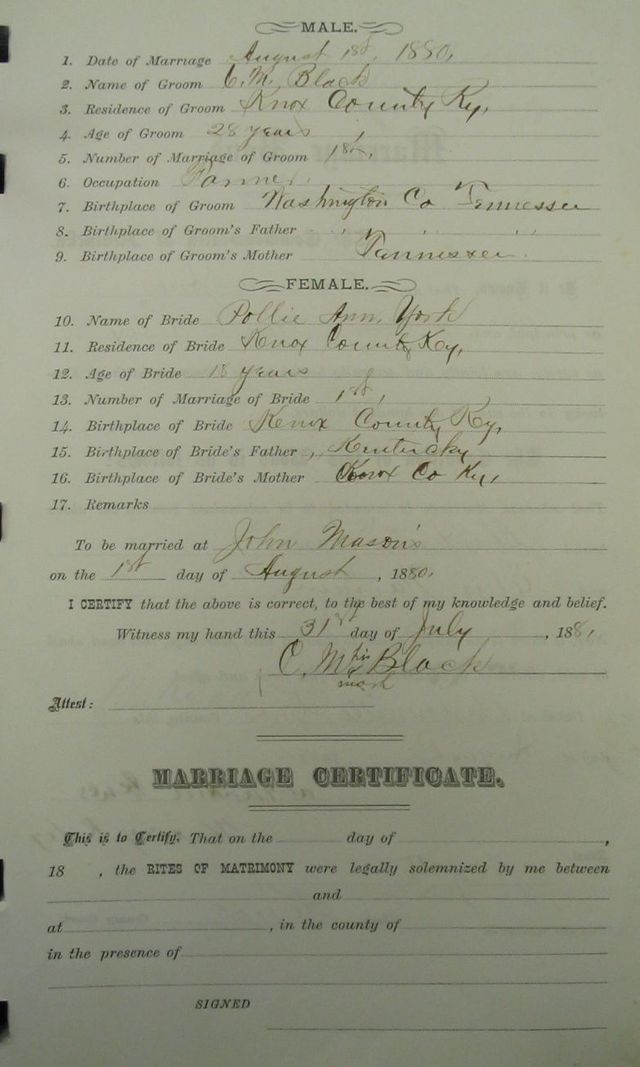 MALE.
1. Date of Marriage August 1st, 1880,
2. Name of Groom C. M. Black
3. Residence of Groom Knox County Ky,
4. Age of Groom 28 years
5. Number of Marriage of Groom 1st,
6. Occupation Farmer.
7. Birthplace of Groom Washington Co Tennessee
8. Birthplace of Groom's Father " " "
9. Birthplace of Groom's Mother Tennessee.
FEMALE.
10. Name of Bride Pollie Ann York
11. Residence of Bride Knox County Ky,
12. Age of Bride 18 years
13. Number of Marriage of Bride 1st,
14. Birthplace of Bride Knox County Ky,
15. Birthplace of Bride's Father, Kentucky
16. Birthplace of Bride's Mother Knox Co Ky,
17. Remarks
To be married at John Mason's
on the 1st day of August, 1880,
I CERTIFY that the above is correct, to the best of my knowledge and belief.
Witness my hand this 31st day of July, 188
his
C. M. x Black
mark
Attest:
MARRIAGE CERTIFICATE.
This is to Certify, That on the day of ,
18 , the RITES OF MATRIMONY were legally solemnized by me between
and
at , in the county of
in the presence of
SIGNED